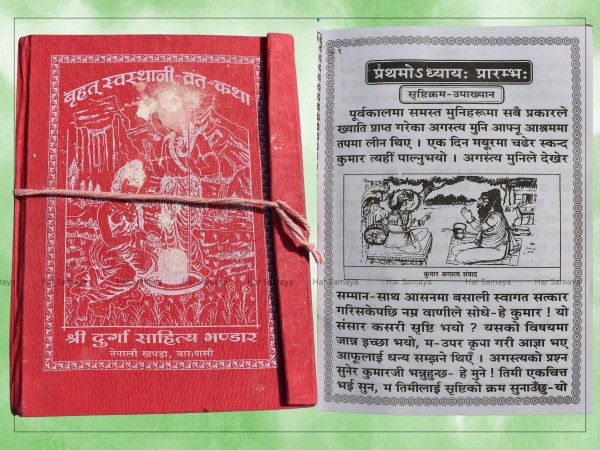 बृहत् स्वस्थानी-व्रत-कथा
श्री दुर्गा साहित्य भण्डार
नेपाली खपडा, वाराणसी
प्रथमोऽध्यायः प्रारम्भः
सृष्टिक्रम-उपाख्यान
पूर्वकालमा समस्त मुनिहरूमा सबै प्रकारले
ख्याति प्राप्त गरेका अगस्त्य मुनि आफ्नू आश्रममा
तपमा लीन थिए । एक दिन मयूरमा चढेर स्कन्द
कुमार त्यहीं पाल्नुभयो । अगस्त्य मुनिले देखेर
कुमार अगस्त्य संवाद
सम्मान-साथ आसनमा बसाली स्वागत सत्कार
गरिसकेपछि नम्र वाणीले सोधे-हे कुमार ! यो
संसार कसरी सृष्टि भयो ? यसको विषयमा
जान्न इच्छा भयो, म-उपर कृपा गरी आज्ञा भए
आफूलाई धन्य सम्झने थिएँ । अगस्त्यको प्रश्न
सुनेर कुमारजी भन्नुहुन्छ- हे मुने ! तिमी एकचित्त
भई सुन, म तिमीलाई सृष्टिको क्रम सुनाउँछु-यो
Har Samaya Har Samaya Har Samaya Har Samaya Har Samaya